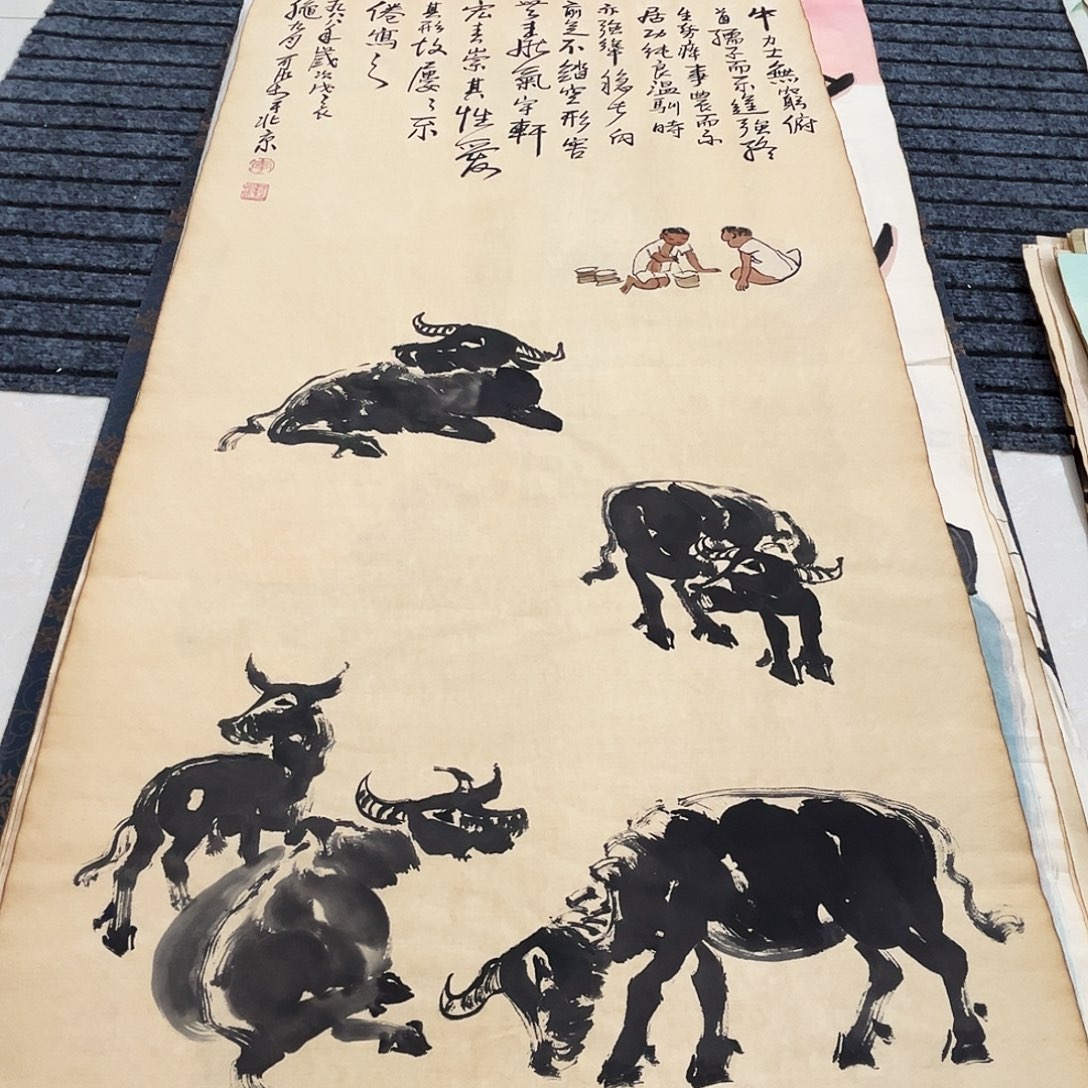 牛力大無窮俯
首孺子而不逞強終
生勞瘁事農而不
居功純良溫馴時
亦強犟穩步向
前足不踏空形容
無華氣宇軒
宏吾崇其性愛
其形故屢〻不
倦寫之
九八八年歲次戊辰
可染于北京